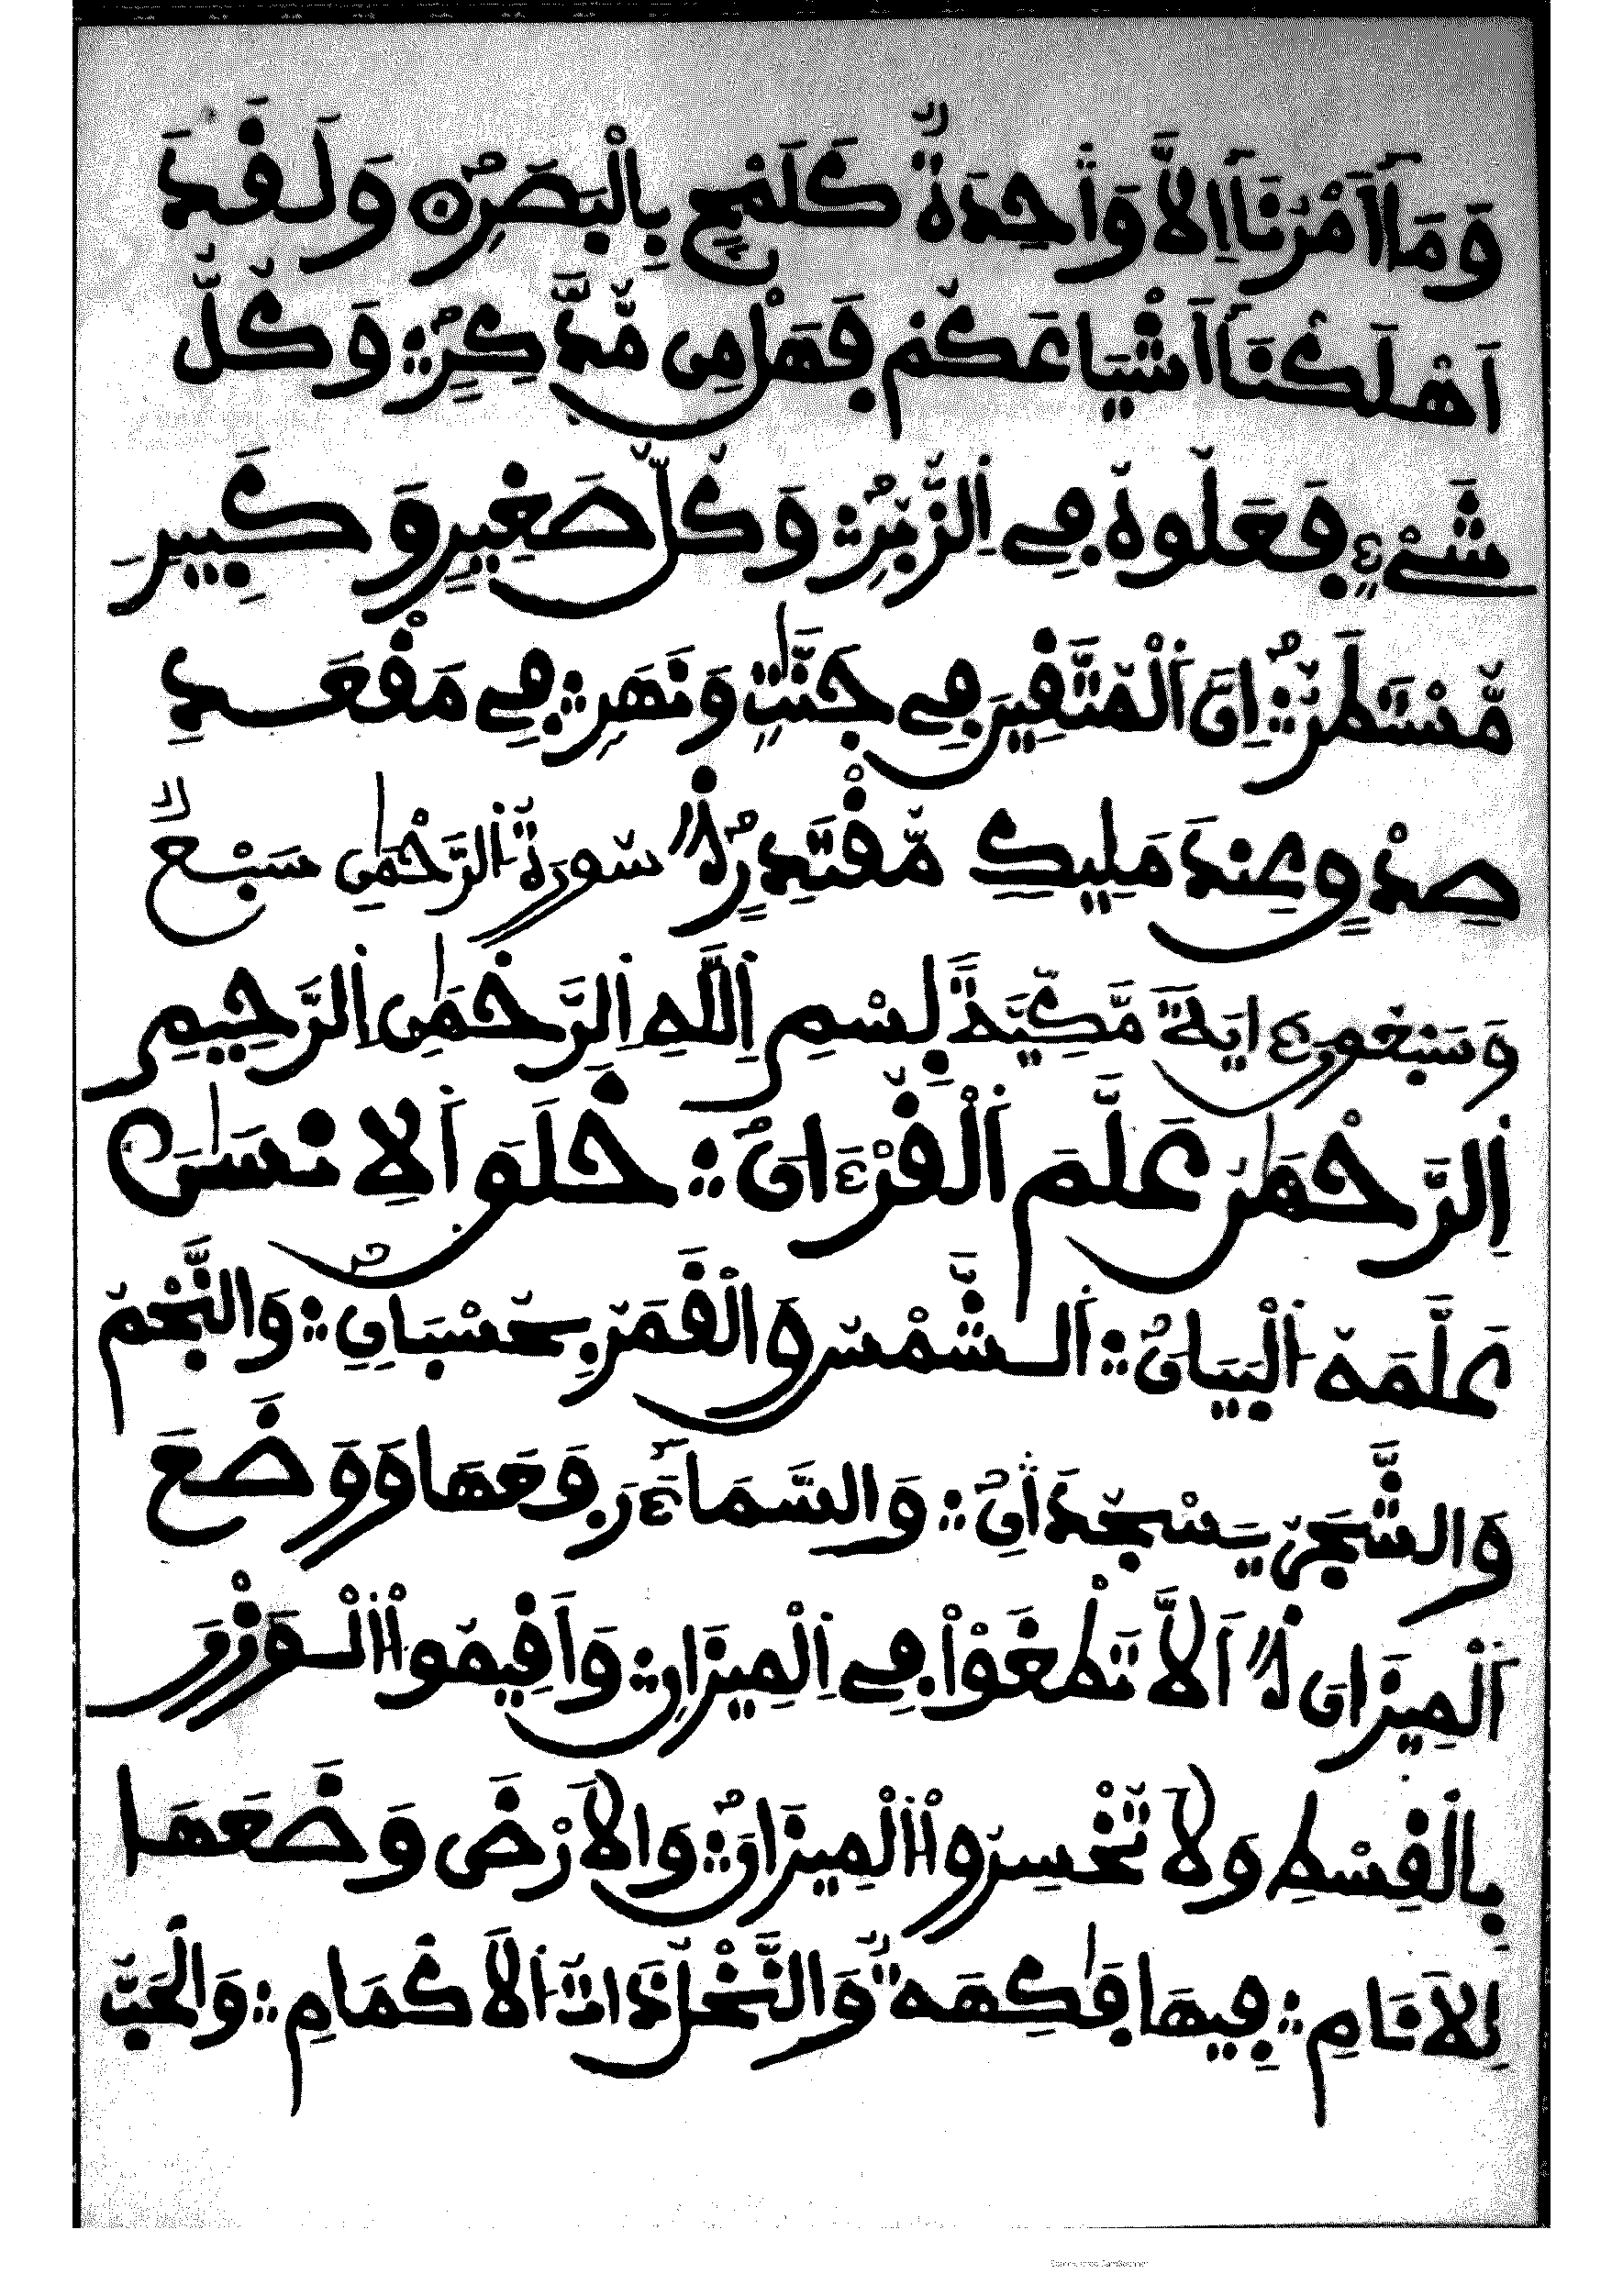 وَمَآ أَمْرُنَآ إِلَّا وَٰحِدَةٌ كَلَمْحٍ بِالْبَصَرِ وَلَقَدَ
اَهْلَكْنَآ أَشْيَاعَكُمْ فَهَلْ مِن مُّدَّكِرٍ وَكُلُّ
شَےْءٍ فَعَلُوهُ فِے اِلزُّبُرِ وَكُلُّ صَغِيرٍ وَكَبِيرٍ
مُّسْتَطَرٌ اِنَّ اَلْمُتَّقِينَ فِے جَنَّٰتٍ وَنَهَرٍ فِے مَقْعَدِ
صِدْقٍ عِندَ مَلِيكٍ مُّقْتَدِرٍ سُورَةُ اُلرَّحْمَٰنِ سَبْعٌ
وَسَبْعُونَ ءَايَةً مَّكِيَّةً بِسْمِ اِللَّهِ اِلرَّحْمَٰنِ اِلرَّحِيمِ
اِلرَّحْمَٰنُ عَلَّمَ اَلْقُرْءَانَ خَلَقَ اَلِانسَٰنَ
عَلَّمَهُ اُلْبَيَانَ اَلشَّمْسُ وَالْقَمَرُ بِحُسْبَانٍ وَالنَّجْمُ
وَالشَّجَرُ يَسْجُدَٰانِ وَالسَّمَآءَ رَفَعَهَا وَوَضَعَ
اَلْمِيزَانَ أَلَّا تَطْغَوْاْ فِے اِلْمِيزَانِ وَأَقِيمُواْ اُلْوَزْنَ
بِالْقِسْطِ وَلَا تُخْسِرُواْ اُلْمِيزَانَ وَالَارْضَ وَضَعَهَا
لِلَانَامِ فِيهَا فَٰكِهَةٌ وَالنَّخْلُ ذَاتُ اُلَاكْمَامِ وَالْحَبُّ